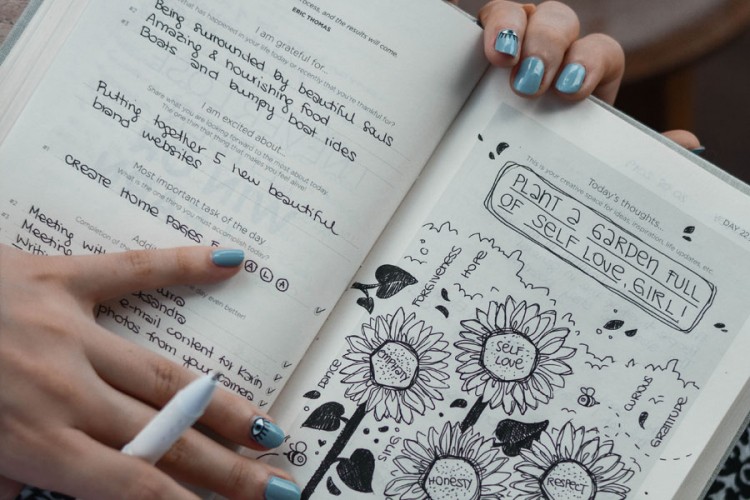 process, and the results will come.
ERIC THOMAS
I am grateful for...
What has happened in your life today or recently that you're thankful for?
Being surrounded by beautiful souls
Amazing & nourishing food
Boats and bumpy boat rides
I am excited about...
Share what you are looking forward to the most about today.
The one thing that makes you feel alive!
Putting together 5 new beautiful
brand websites
Most important task of the day
What is the one thing you must accomplish today?
#1
CREATE HOME PAGES
ALA
#2
Meeting with
#3
Meeting
Writing
e-mail content for Karin
photos from your camera
DAY 22
Today's thoughts...
This is your creative space for ideas, inspiration, life updates, etc.
PLANT A GARDEN FULL
OF SELF LOVE, GIRL!
FORGIVENESS
HOPE
SELF
LOVE
DANCE
SING
CURIOUS
GRATITUDE
HONESTY
RESPECT